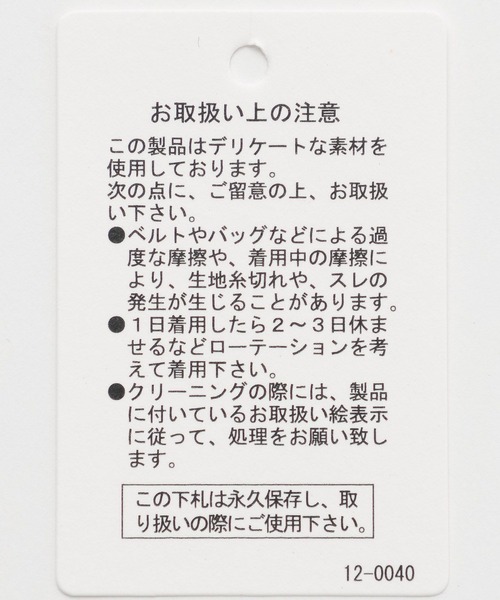 お取扱い上の注意
この製品はデリケートな素材を
使用しております。
次の点に、ご留意の上、お取扱
い下さい。
●ベルトやバッグなどによる過
度な摩擦や、着用中の摩擦に
より、生地糸切れや、スレの
発生が生じることがあります。
●１日着用したら２～３日休ま
せるなどローテーションを考
えて着用下さい。
●クリーニングの際には、製品
に付いているお取扱い絵表示
に従って、処理をお願い致し
ます。
この下札は永久保存し、取
り扱いの際にご使用下さい。
12-0040